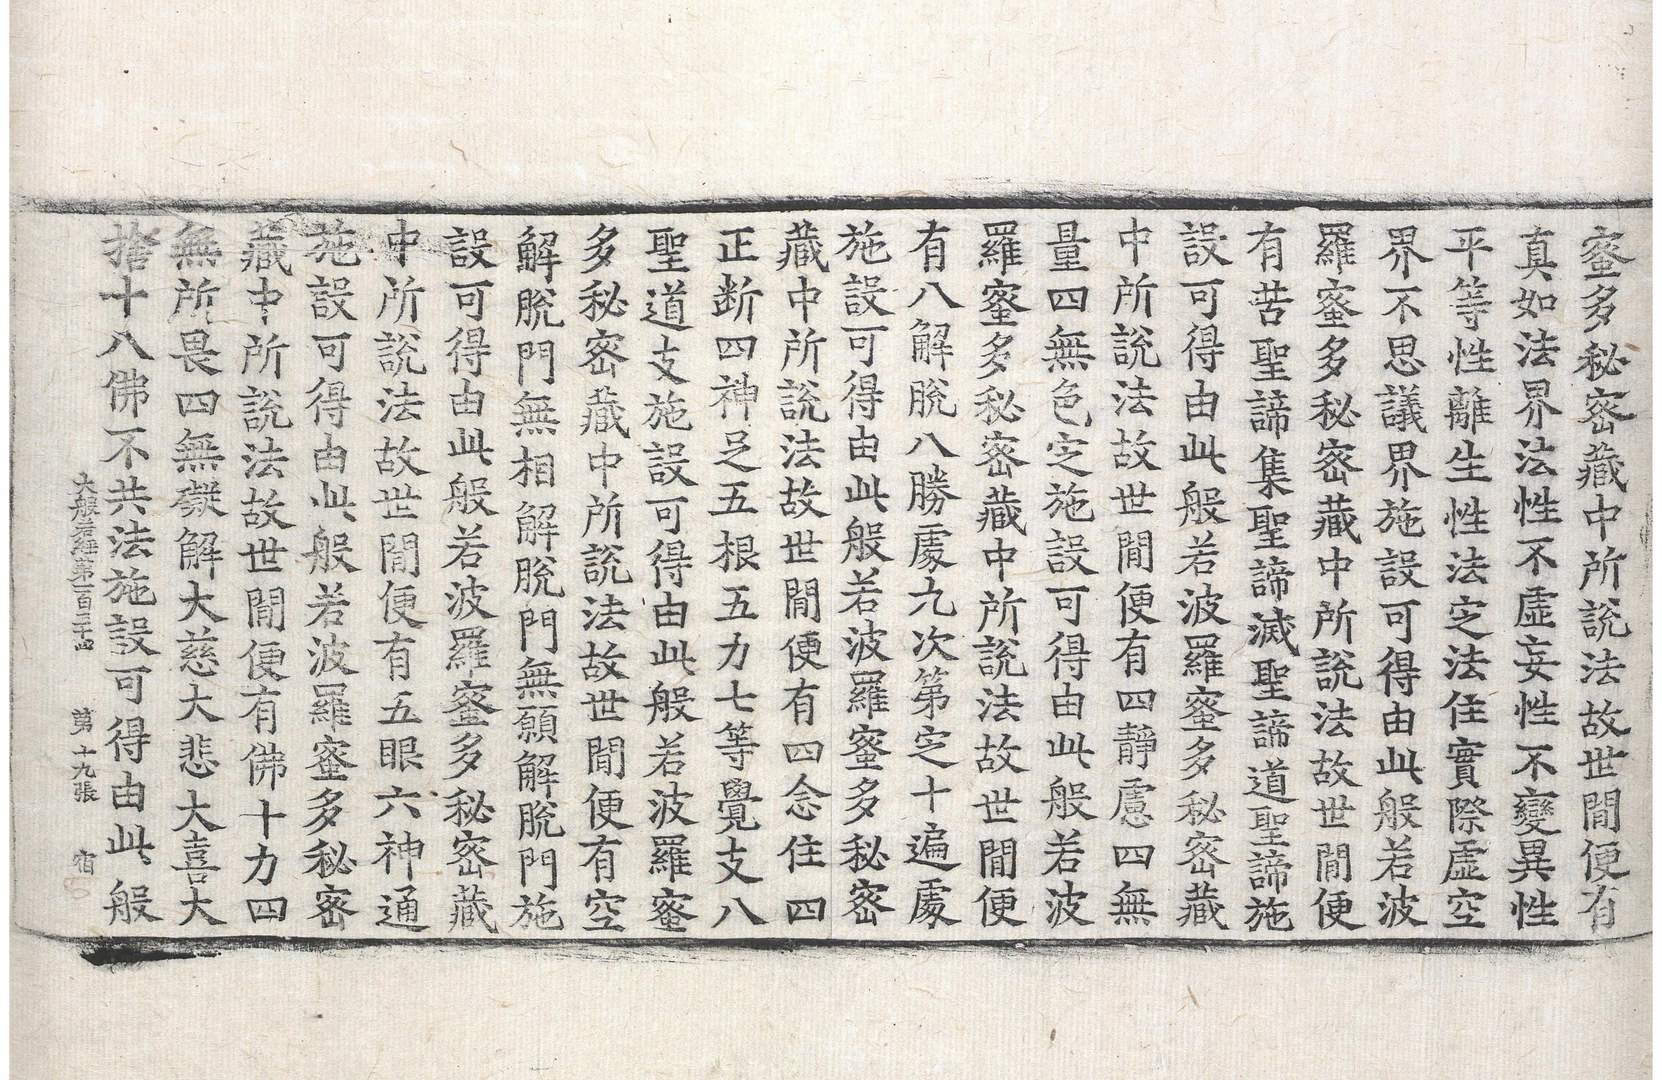 蜜多秘密藏中所說法故世間便有
真如法界法性不虛妄性不變異性
平等性離生性法定法住實際虛空
界不思議界施設可得由此般若波
羅蜜多秘密藏中所說法故世間便
有苦聖諦集聖諦滅聖諦道聖諦施
設可得由此般若波羅蜜多秘密藏
中所說法故世間便有四靜慮四無
量四無色定施設可得由此般若波
羅蜜多秘密藏中所說法故世間便
有八解脫八勝處九次第定十遍處
施設可得由此般若波羅蜜多秘密
藏中所說法故世間便有四念住四
正断四神足五根五力七等覺支八
聖道支施設可得由此般若波羅蜜
多秘密藏中所說法故世間便有空
解脫門無相解脫門無願解脫門施
設可得由此般若波羅蜜多秘密藏
中所說法故世間便有五眼六神通
施設可得由此般若波羅蜜多秘密
藏中所說法故世間便有佛十力四
無所畏四無礙解大慈大悲大喜大
捨十八佛不共法施設可得由此般
大般若經第一百三十四 第十九張 宿